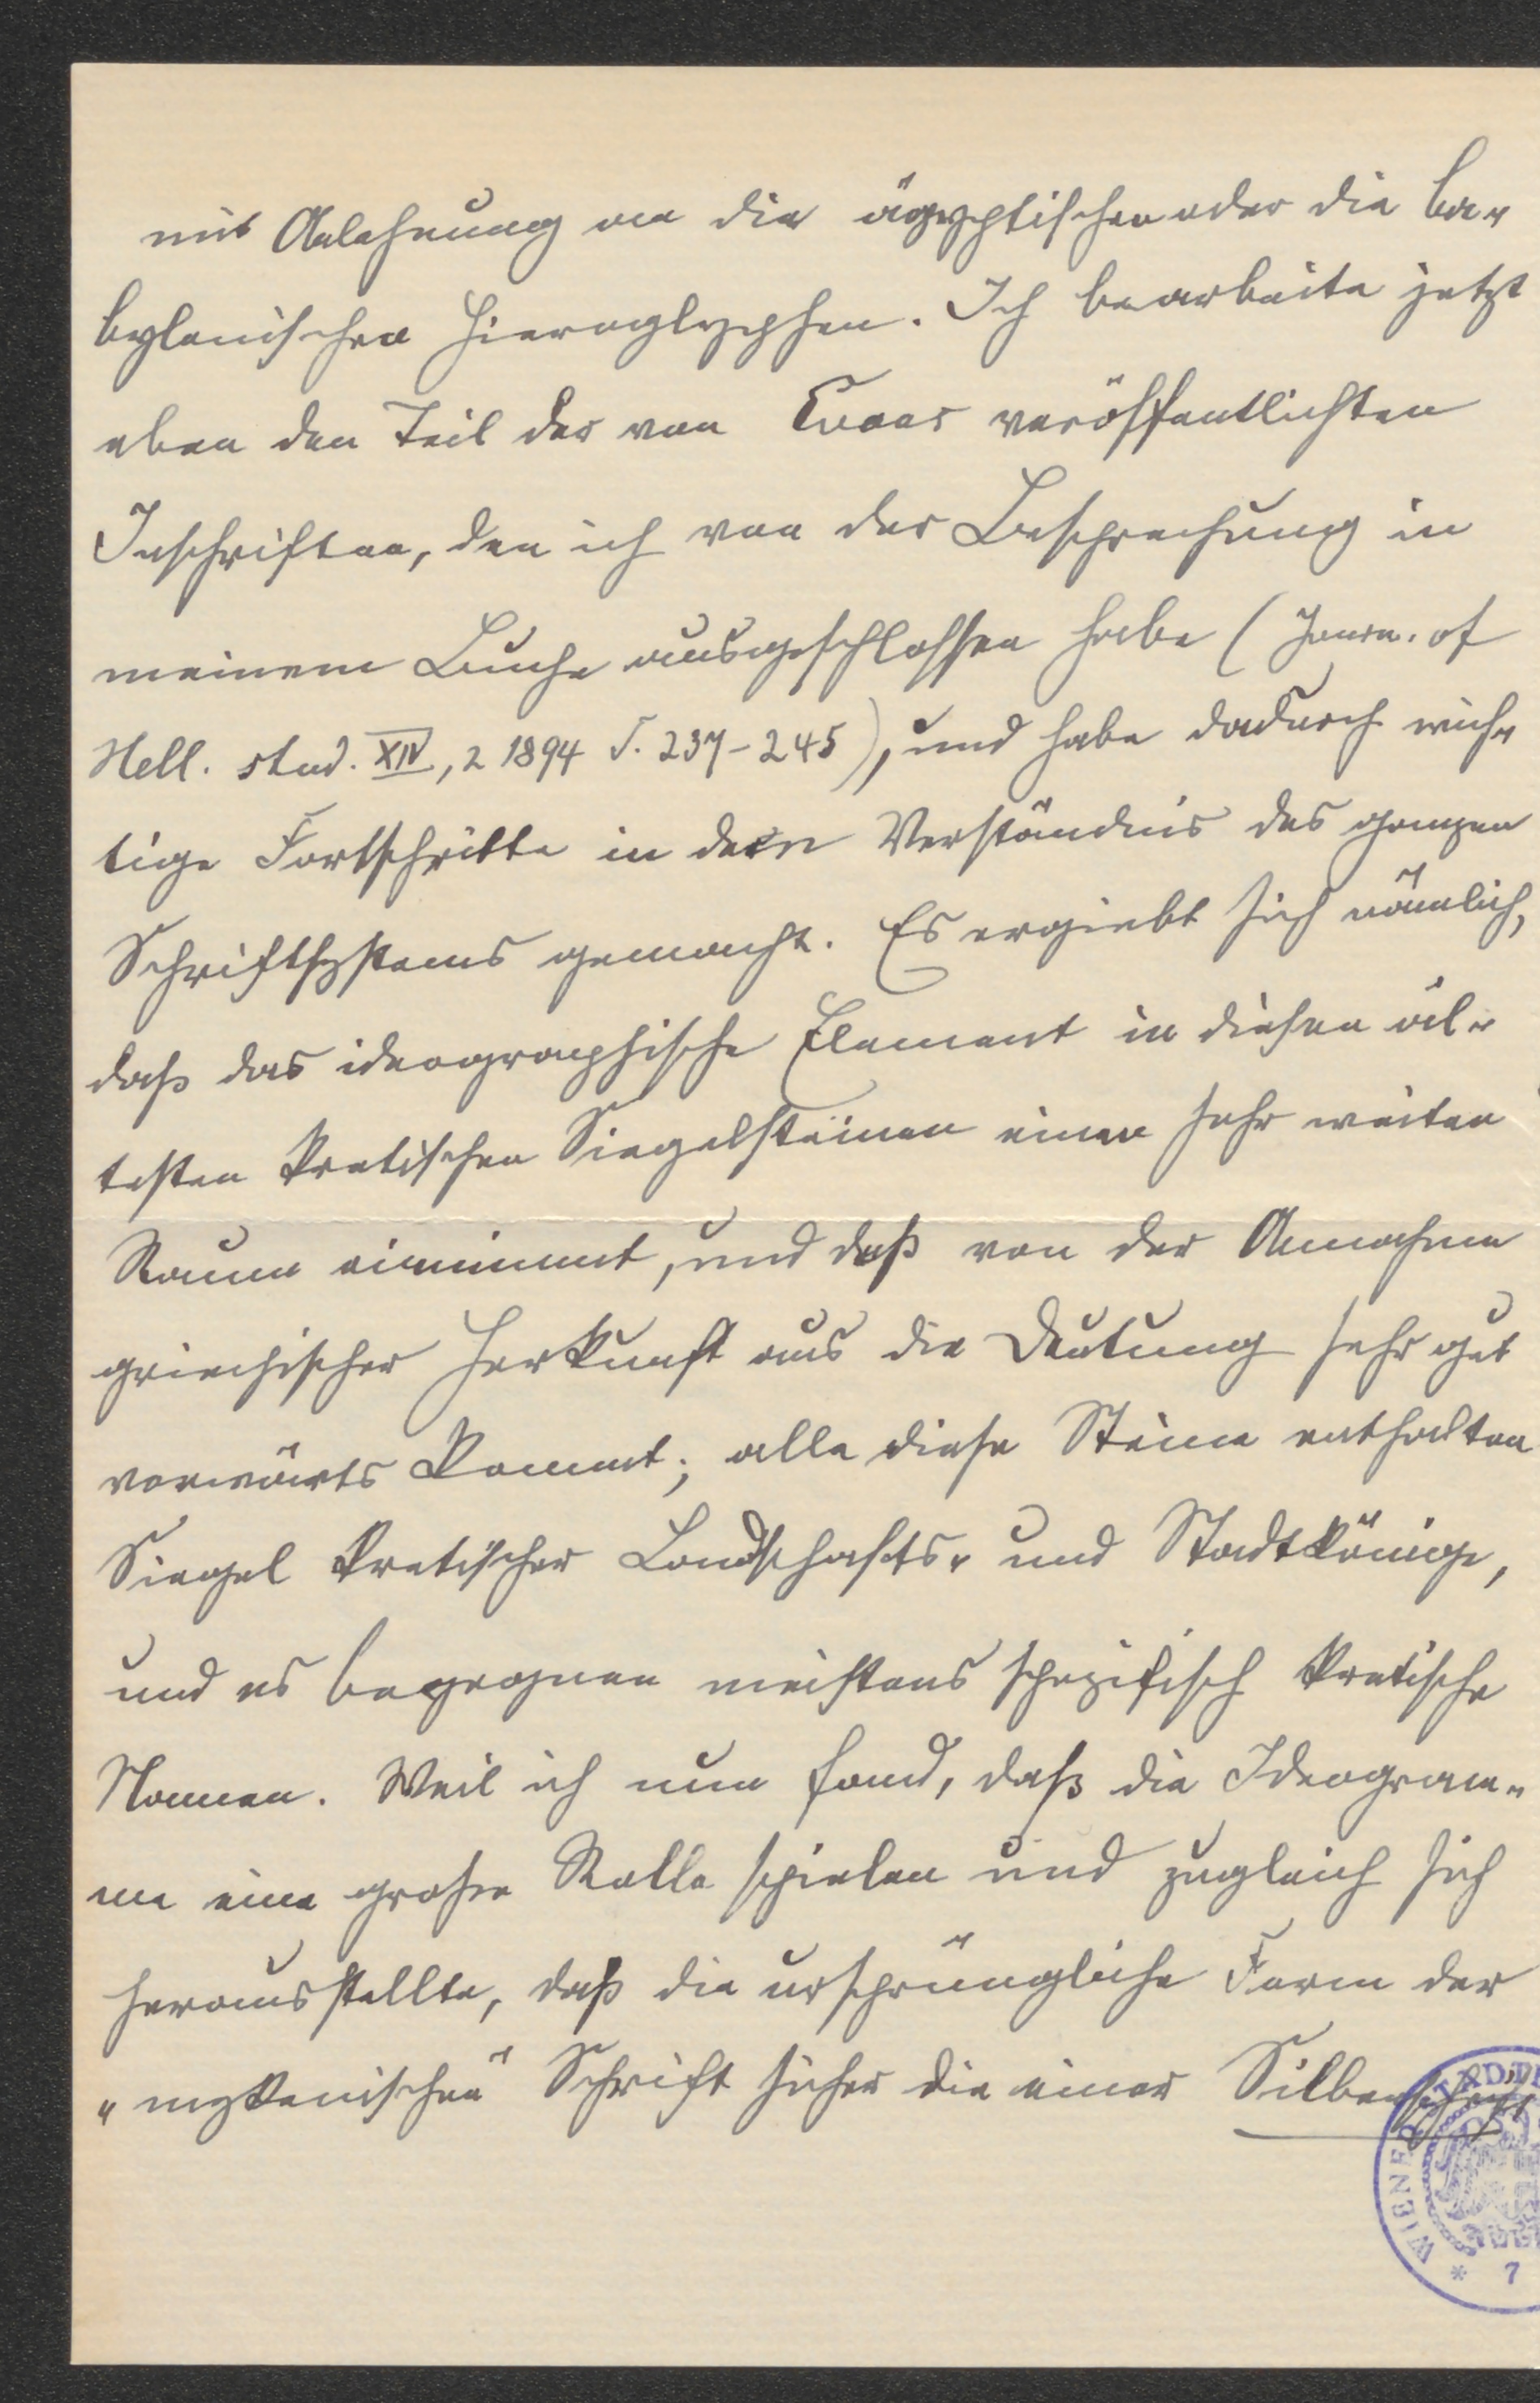 mit Anlehnung an die ägyptischen oder die ba-
bylonischen Hieroglyphen. Ich bearbeite jetzt
eben den Teil der von Evans veröffentlichten
Inschriften, den ich von der Besprechung in
meinem Buche ausgeschlossen habe (Journ. of
Hell. stud. XIV, 2 1894 S. 237-245), und habe dadurch wich-
tige Fortschritte in dem Verständnis des ganzen
Schriftsystems gemacht. Es ergiebt sich nämlich,
daß das ideographische Element in diesen äl-
testen kretischen Siegelsteinen einen sehr weiten
Raum einnimmt, und daß von der Annahme
griechischer Herkunft aus die Deutung sehr gut
vorwärts kommt; alle diese Steine enthalten
Siegel kretischer Landschafts- und Stadtkönige,
und es begegnen meistens spezifisch kretische
Namen. Weil ich nun fand, daß die Ideogram-
me eine große Rolle spielen und zugleich sich
herausstellte, daß die ursprüngliche Form der
"mykenischen" Schrift sicher die einer Silbenschrift
WIENER STÄDT
* 7